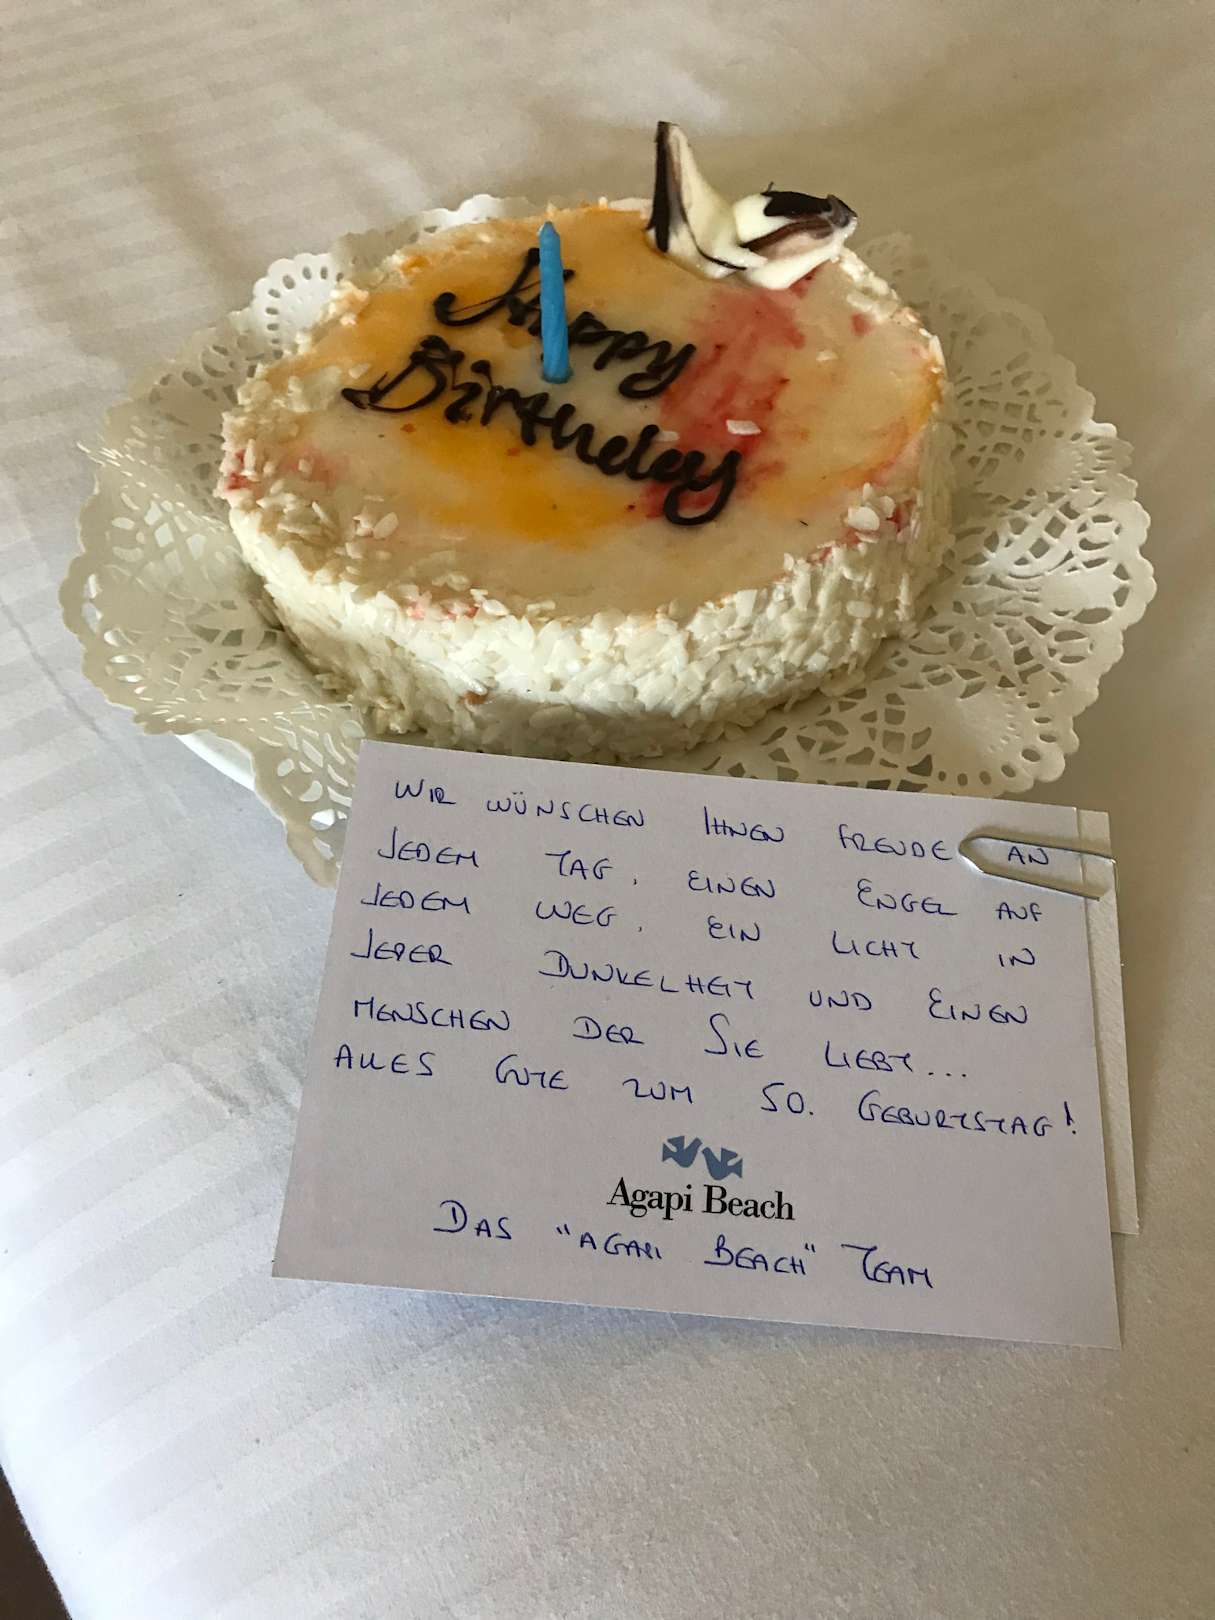 Happy
Birthday
WIR WÜNSCHEN IHNEN FREUDE AN
JEDEM TAG, EINEN ENGEL AUF
JEDEM WEG, EIN LICHT IN
JEDER DUNKELHEIT UND EINEN
MENSCHEN DER SIE LIEBT...
ALLES GUTE ZUM 50. GEBURTSTAG!
Agapi Beach
DAS "AGAPI BEACH" TEAM